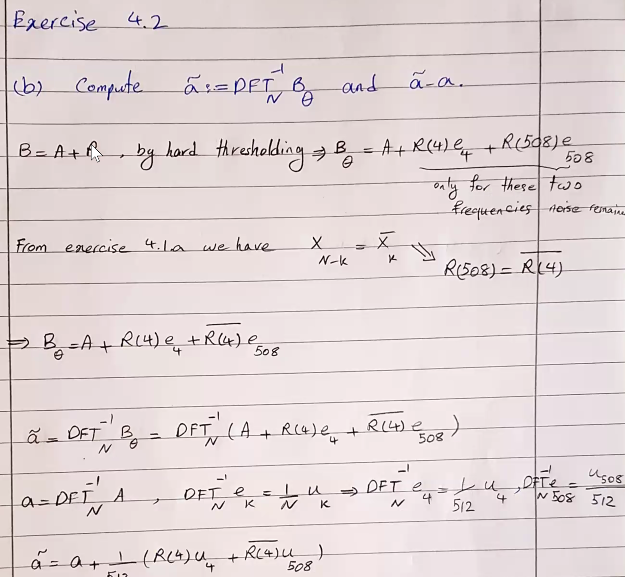 Exercise 4.2
(b) Compute ã := DFT_N^{-1} B_θ and ã-a.
B = A + R, by hard thresholding ⇒ B_θ = A + R(4)e_4 + R(508)e_508
only for these two
frequencies noise remains
From exercise 4.1a we have X_{N-k} = \overline{X_k} ⇒ R(508) = \overline{R(4)}
⇒ B_θ = A + R(4)e_4 + \overline{R(4)}e_508
ã = DFT_N^{-1} B_θ = DFT_N^{-1} (A + R(4)e_4 + \overline{R(4)}e_508)
a = DFT_N^{-1} A , DFT_N^{-1} e_k = \frac{1}{N} u_k ⇒ DFT_N^{-1} e_4 = \frac{1}{512} u_4 , DFT_N^{-1} e_508 = \frac{u_508}{512}
ã = a + \frac{1}{512} (R(4)u_4 + \overline{R(4)}u_508)